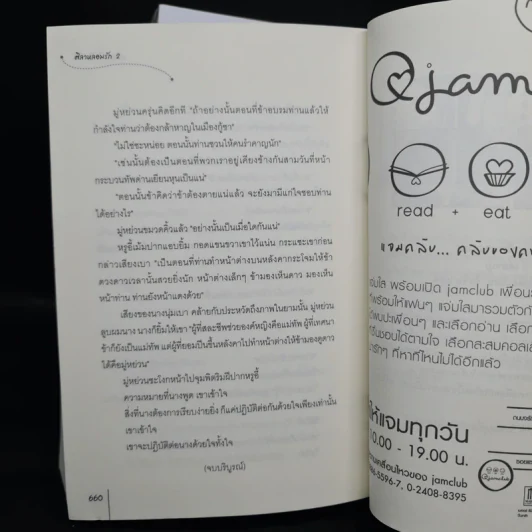 ศิลาหลอมรัก 2
มู่หย่วนครุ่นคิดอีกที "ถ้าอย่างนั้นตอนที่ข้าอบรมท่านแล้วให้
กำลังใจท่านว่าต้องกล้าหาญในเมืองกู้ซา"
"ไม่ใช่ซะหน่อย ตอนนั้นท่านชวนให้คนรำคาญนัก"
"เช่นนั้นต้องเป็นตอนที่พวกเราอยู่เคียงข้างกันสามวันที่หน้า
กระบวนทัพด่านเยียนหุนเป็นแน่"
"ตอนนั้นข้าคิดว่าข้าต้องตายแน่แล้ว จะยังมามีแก่ใจชอบท่าน
ได้อย่างไร"
มู่หย่วนขมวดคิ้วแล้ว "อย่างนั้นเป็นเมื่อใดกันแน่"
หรูอี้เม้มปากแอบยิ้ม กอดแขนขวาเขาไว้แน่น กระแซะเขาก่อน
กล่าวเสียงเบา "เป็นตอนที่ท่านทำหน้าต่างบนหลังคากระโจมให้ข้า
ดวงดาวเวลานั้นสวยยิ่งนัก หน้าต่างเล็กๆ ข้ามองเห็นดาว มองเห็น
หน้าท่าน ท่านยังหน้าแดงด้วย"
เสียงของนางนุ่มเบา คล้ายกับประหวัดถึงภาพในยามนั้น มู่หย่วน
ลูบผมนาง นางก็ยิ้มให้เขา "ผู้ที่สละชีพช่วยองค์หญิงคือแม่ทัพ ผู้ที่เทศนา
ข้าก็ยังเป็นแม่ทัพ แต่ผู้ที่ยอมปีนขึ้นหลังคาไปทำหน้าต่างให้ข้ามองดูดาว
ได้คือมู่หย่วน"
มู่หย่วนชะโงกหน้าไปจุมพิตริมฝีปากหรูอี้
ความหมายที่นางพูด เขาเข้าใจ
สิ่งที่นางต้องการเรียบง่ายยิ่ง ก็แค่ปฏิบัติต่อกันด้วยใจเพียงเท่านั้น
เขาเข้าใจ
เขาจะปฏิบัติต่อนางด้วยใจทั้งใจ
(จบบริบูรณ์)
660
jam
read + eat
แจมคลับ... คลับของคน
พร้อมเปิด jamclub เพื่อน
พร้อมให้แฟนๆ แจ่มใสมารวมตัวกั
พบปะเพื่อนๆ และเลือกอ่าน เลือก
ชอบได้ตามใจ เลือกสะสมคอลเล
น่ารักๆ ที่หาที่ไหนไม่ได้อีกแล้ว
ให้แจมทุกวัน
10.00 - 19.00 น.
ความเคลื่อนไหวของ jamclub
5596-7, 0-2408-8395
jamclub